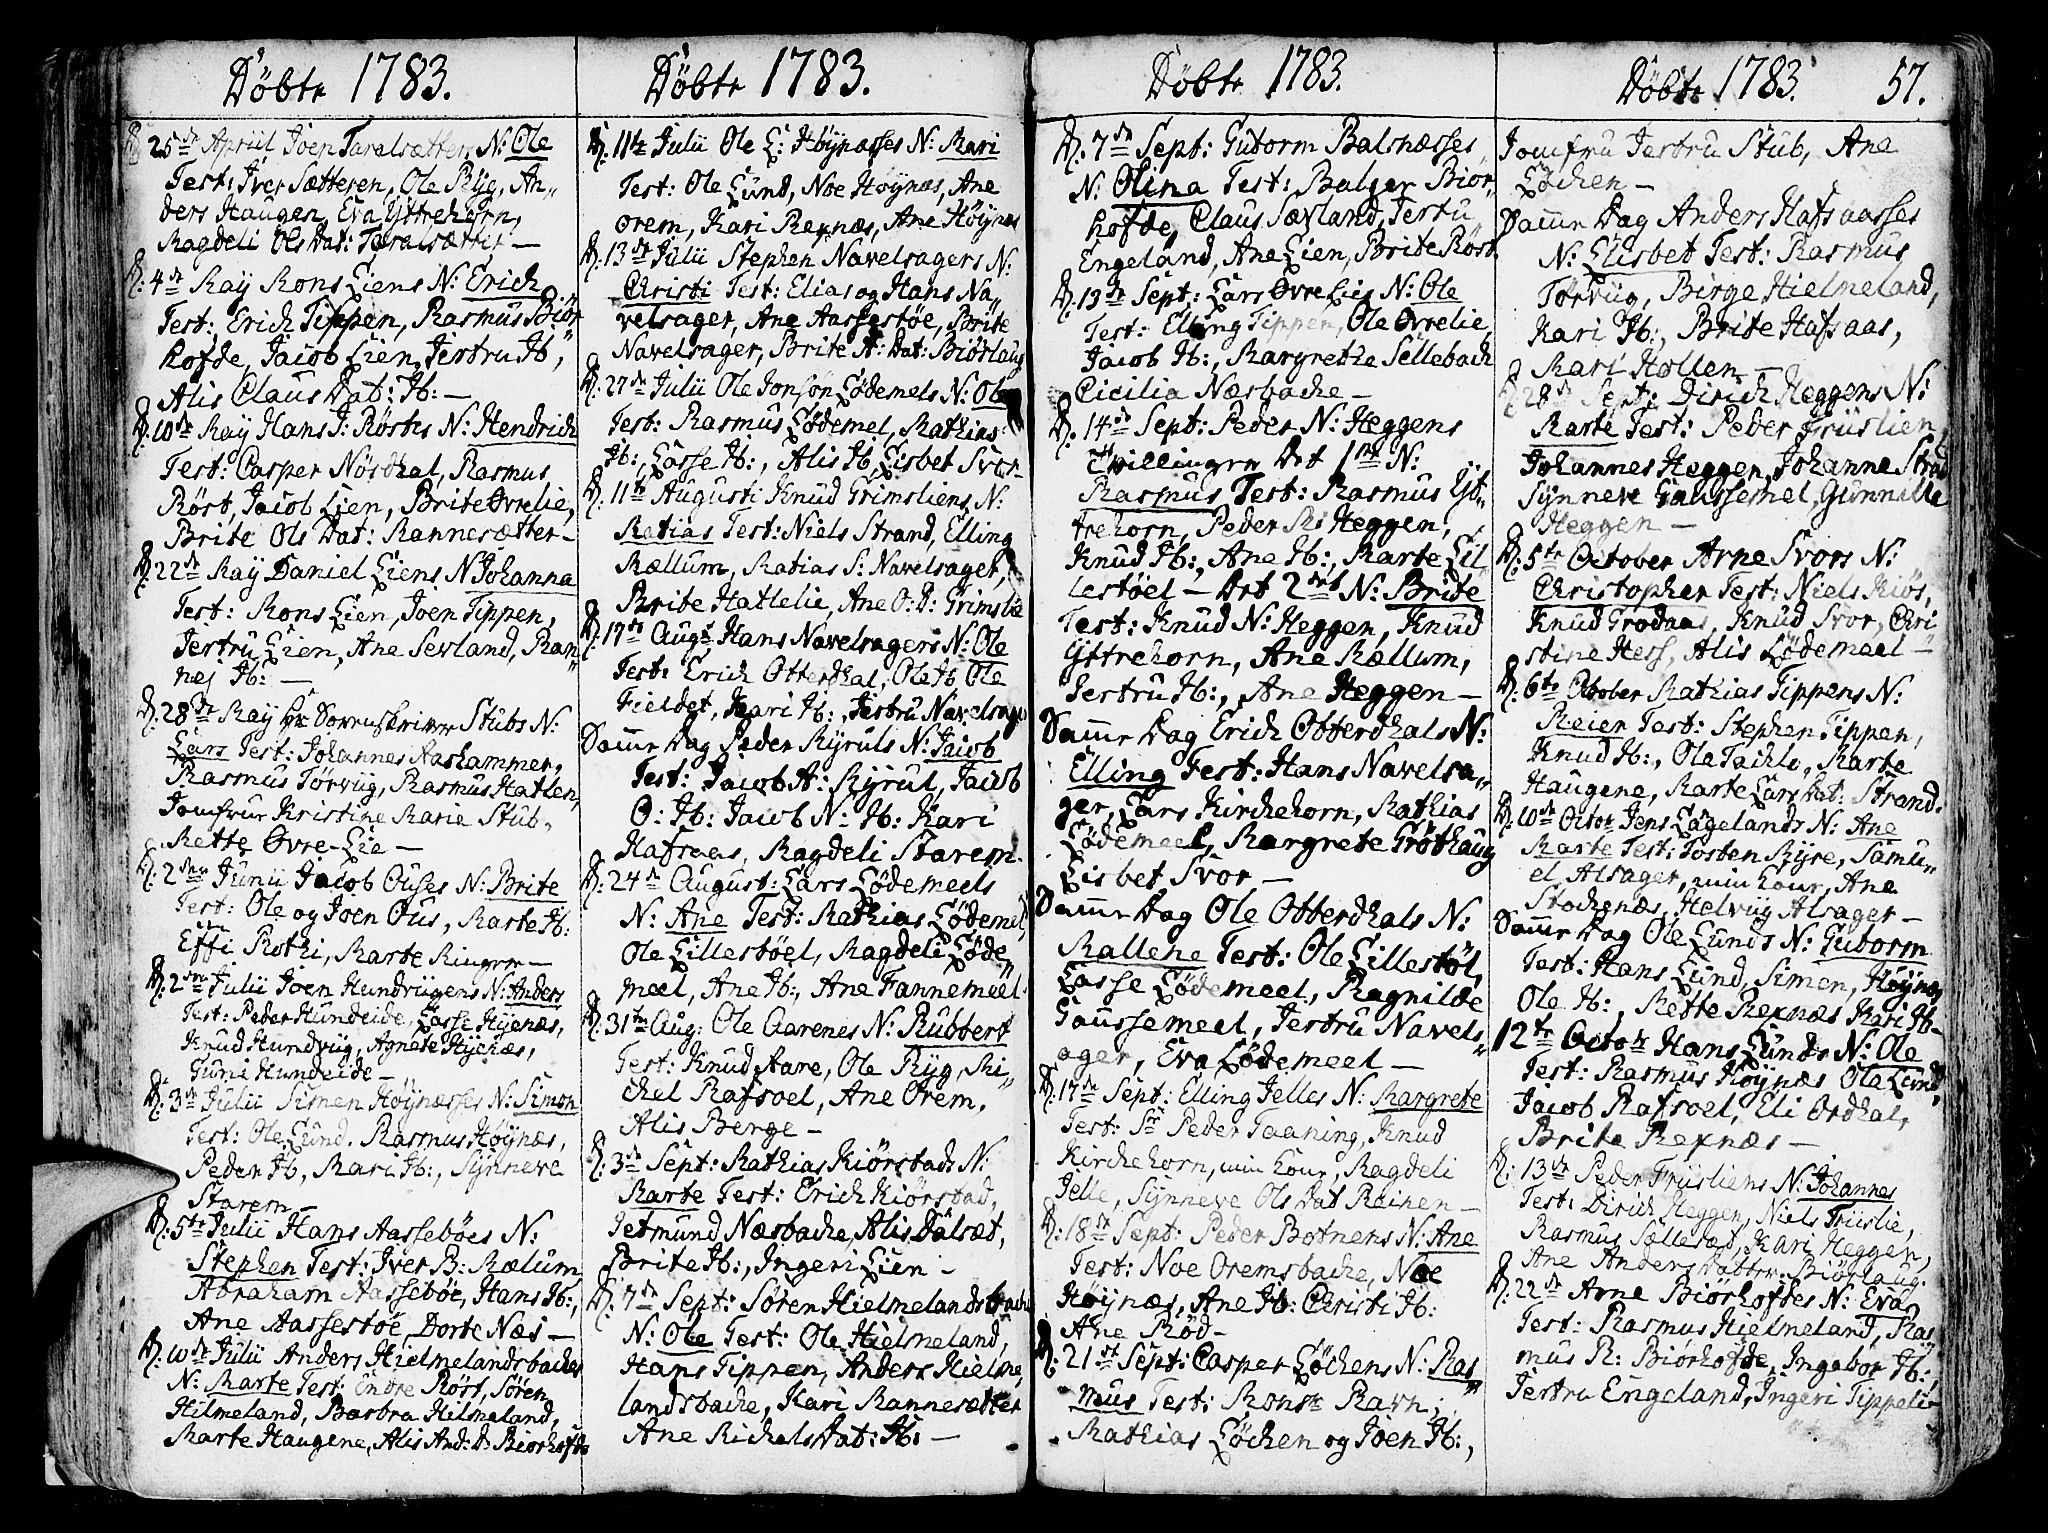 Döbte 1783.
D: 25de Apriil Joen Taralsætters N: Ole
Test: Iver Sætteren, Ole Ryg, An„
ders Haugen, Eva Yttrehorn,
Magdeli Ols Dat: Taralsætter —
D: 4de May Mons Liens N: Erich
Test: Erich Tippen, Rasmus Biör
hofde, Jacob Lien, Jertru Ib,
Alis Claus Dat: Ib: —
D: 10de May Hans J: Rösts N: Hendrich
Test: Casper Nördhal, Rasmus
Röst, Jacob Lien, Brite Övrelie,
Brite Ols Dat: Mannesætter —
D: 22de May Daniel Liens N Johanna
Test: Mons Lien, Joen Tippen,
Jertru Lien, Ane Sevland, Ran„
nej Ib: —
D: 28de May Hr Sorenskriver Stubs N:
Lars Test: Johannes Aashammer,
Rasmus Törviig, Rasmus Hatlen,
Jomfrur Kristine Marie Stub,
Mette Övre-Lie —
D: 2den Junii Jacob Ouses N: Brite
Test: Ole og Joen Ous, Marte Ib:
Effi Rothi, Marte Ringen —
D: 2den Julii Joen Hundviigens N: Anders
Test: Peder Hundeide, Lasse Hyenæs,
Knud Hundviig, Agnete Hyenæs,
Guni Hundeide —
D: 3de Julii Simen Höynæsses N: Simon
Test: Ole Lund, Rasmus Höynæs,
Peder Ib, Mari Ib:, Synneve
Starem —
D: 5te Julii Hans Aasseböes N:
Stephen Test: Iver B: Mælum
Abraham Aasseböe, Hans Ib:,
Ane Aassestöe, Dorte Næs —
D: 10de Julii Anders Hielmelandsbaches
N: Marte Test: Endre Röst, Sören
Hilmeland, Barbra Hilmeland,
Marte Haugene, Alis And: D: Biorhofde
Döbte 1783.
D: 11te Julii Ole L: Höynæsses N: Mari
Test: Ole Lund, Noe Höynæs, Ane
Orem, Kari Rexnæs, Ane Höynæs
D: 13de Julii Stephen Navelsagers N:
Christi Test: Elias og Hans Na„
velsager, Ane Aassestöe, Brite
Navelsager, Brite A: Dat: Biörlaug
D: 27de Julii Ole Jonsön Lödemels N: Ole
Test: Rasmus Lödemel, Mathias
Ib:, Lasse Ib:, Alis Ib Lisbet Svor —
D: 11te Augusti Knud Grimsliens N:
Matias Test: Niels Strand, Elling
Mællum, Matias S: Navelsager,
Brite Hatlelie, Ane O: D: Grimslie
D: 17de Augs Hans Navelsagers N: Ole
Test: Erich Otterdhal, Ole Ib Ole
Fieldet, Kari Ib:, Jertru Navelsager
Samme Dag Peder Myruls N: Jacob
Test: Jacob A: Myrul, Jacob
O: Ib: Jacob N: Ib: Kari
Hafsaas, Magdeli Starem.
D: 24de August: Lars Lödemeels
N: Ane Test: Mathias Lödemel,
Ole Lillestöel, Magdeli Löde„
meel, Ane Ib:, Ane Fannemeel
D: 31te Aug: Ole Aarenes N: Rubbert
Test: Knud Aare, Ole Ryg, Mi„
chel Rafsoel, Ane Orem,
Alis Berge —
D: 3de Sept: Mathias Kiörstads N:
Marte Test: Erich Kiörstad,
Jetmund Næsbache, Alis Dalsæt,
Brite Ib:, Ingeri Lien —
D: 7de Sept: Sören Hielmelandsbache
N: Ole Test: Ole Hielmeland,
Hans Tippen, Anders Hielme„
landsbache, Kari Mannesætter
Ane Michels Dat: Ib: —
Döbte 1783.
D: 7de Sept: Gutorm Balsnæsses
N: Olina Test: Balser Biör„
hofde, Claus Sævland, Jertru
Engeland, Ane Lien, Brite Röst
D: 13de Sept: Lars Övrelies N: Ole
Test: Elling Tippen, Ole Övrelie,
Jacob Ib:, Margrethe Sellebach
Cicilia Næsbache —
D: 14de Sept: Peder N: Heggens
Tvillinger Det 1ste N:
Rasmus Test: Rasmus Yt„
trehorn, Peder Ms Heggen,
Knud Ib:, Ane Ib:, Marte Lil„
lestöel — Det 2det N: Brite
Test: Knud N: Heggen, Knud
Yttrehorn, Ane Mællum,
Jertru Ib:, Ane Heggen —
Samme Dag Erich Otterdhals N:
Elling Test: Hans Navelsa„
ger, Lars Kirchehorn, Mathias
Lödemeel, Margrete Gröthaug
Lisbet Svor —
Samme Dag Ole Otterdhals N:
Mallene Test: Ole Lillestöl,
Lasse Lödemeel, Magnilde
Gaussemeel, Jertru Navels„
ager, Eva Lödemeel —
D: 17de Sept: Elling Jelles N: Margrete
Test: Sr Peder Taaning, Knud
Kirchehorn, min Kone, Magdeli
Jelle, Synneve Ols Dat Reinen —
D: 18de Sept: Peder Botnens N: Ane
Test: Noe Oremsbache, Noe
Höynæs, Ane Ib: Christi Ib:
Ane Röd —
D: 21st Sept: Casper Löchens N: Ras„
mus Test: Monsr Ravn,
Mathias Löchen og Joen Ib:,
Döbte 1783. 57.
Jomfru Jertru Stub, Ane
Löchen —
Samme Dag Anders Hafsaasses
N: Elisbet Test: Rasmus
Törviig, Birge Hielmeland,
Kari Ib:, Brite Hafsaas,
Mari Hollen —
D: 28de Sept: Dirich Heggens N:
Marte Test: Peder Friislien,
Johannes Heggen, Johanne Strand
Synneve Gaussemel, Gunnille
Heggen —
D: 5te October Arne Svors N:
Christopher Test: Niels Kiös,
Knud Grodaas, Knud Svor, Chri
stine Hess, Alis Lödemeel —
D: 6te October Mathias Tippens N:
Reier Test: Stephen Tippen,
Knud Ib:, Ola Taklo, Marte
Haugene, Marte Lars Dat: Strand.
D: 10de Octor Jens Lögelands N: Ane
Marte Test: Tosten Myre, Samu„
el Alsager, min Kone, Ane
Stochenæs, Helviig Alsager —
Samme Dag Ole Lunds N: Gutorm
Test: Hans Lund, Simen, Höynæs,
Ole Ib:, Mette Rexnæs Kari Ib —
12te Octor Hans Lunds N: Ole
Test: Rasmus Höynæs Ola Lund,
Jacob Rafsoel, Eli Ordhal,
Brite Rexnæs —
D: 13de Peder Friisliens N: Johannes
Test: Dirich Heggen, Niels Friislie,
Rasmus Sællesæt, Kari Heggen,
Ane Anders Datter Biörlaug.
D: 22de Arne Biörhofdes N: Eva
Test: Rasmus Hielmeland, Ras
mus R: Biörhofde, Ingabor Ib:,
Jertru Engeland, Ingeri Tippen —